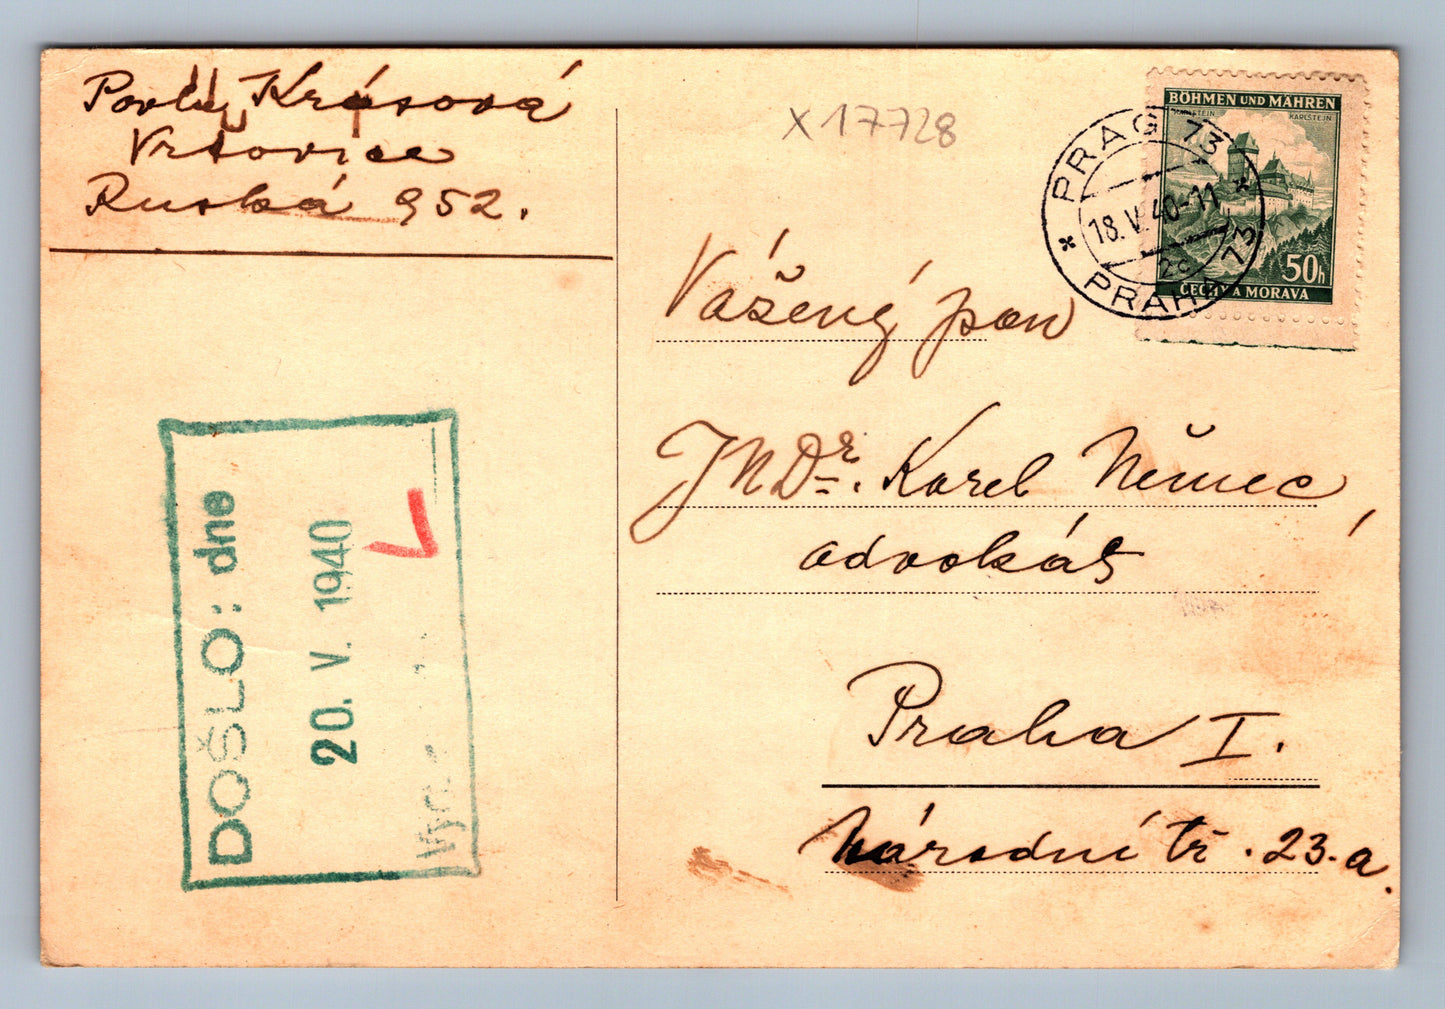 Pavla Krásová
Vršovice
Ruská 952.
X17728
BÖHMEN UND MÄHREN
KARLSTEIN
50h
ČECHY A MORAVA
PRAG 73
18.V.40-11
2c
PRAHA 73
Vážený pan
JUDr. Karel Němec
advokát
Praha I.
Národní tř. 23.a.
DOŠLO: dne
20. V. 1940